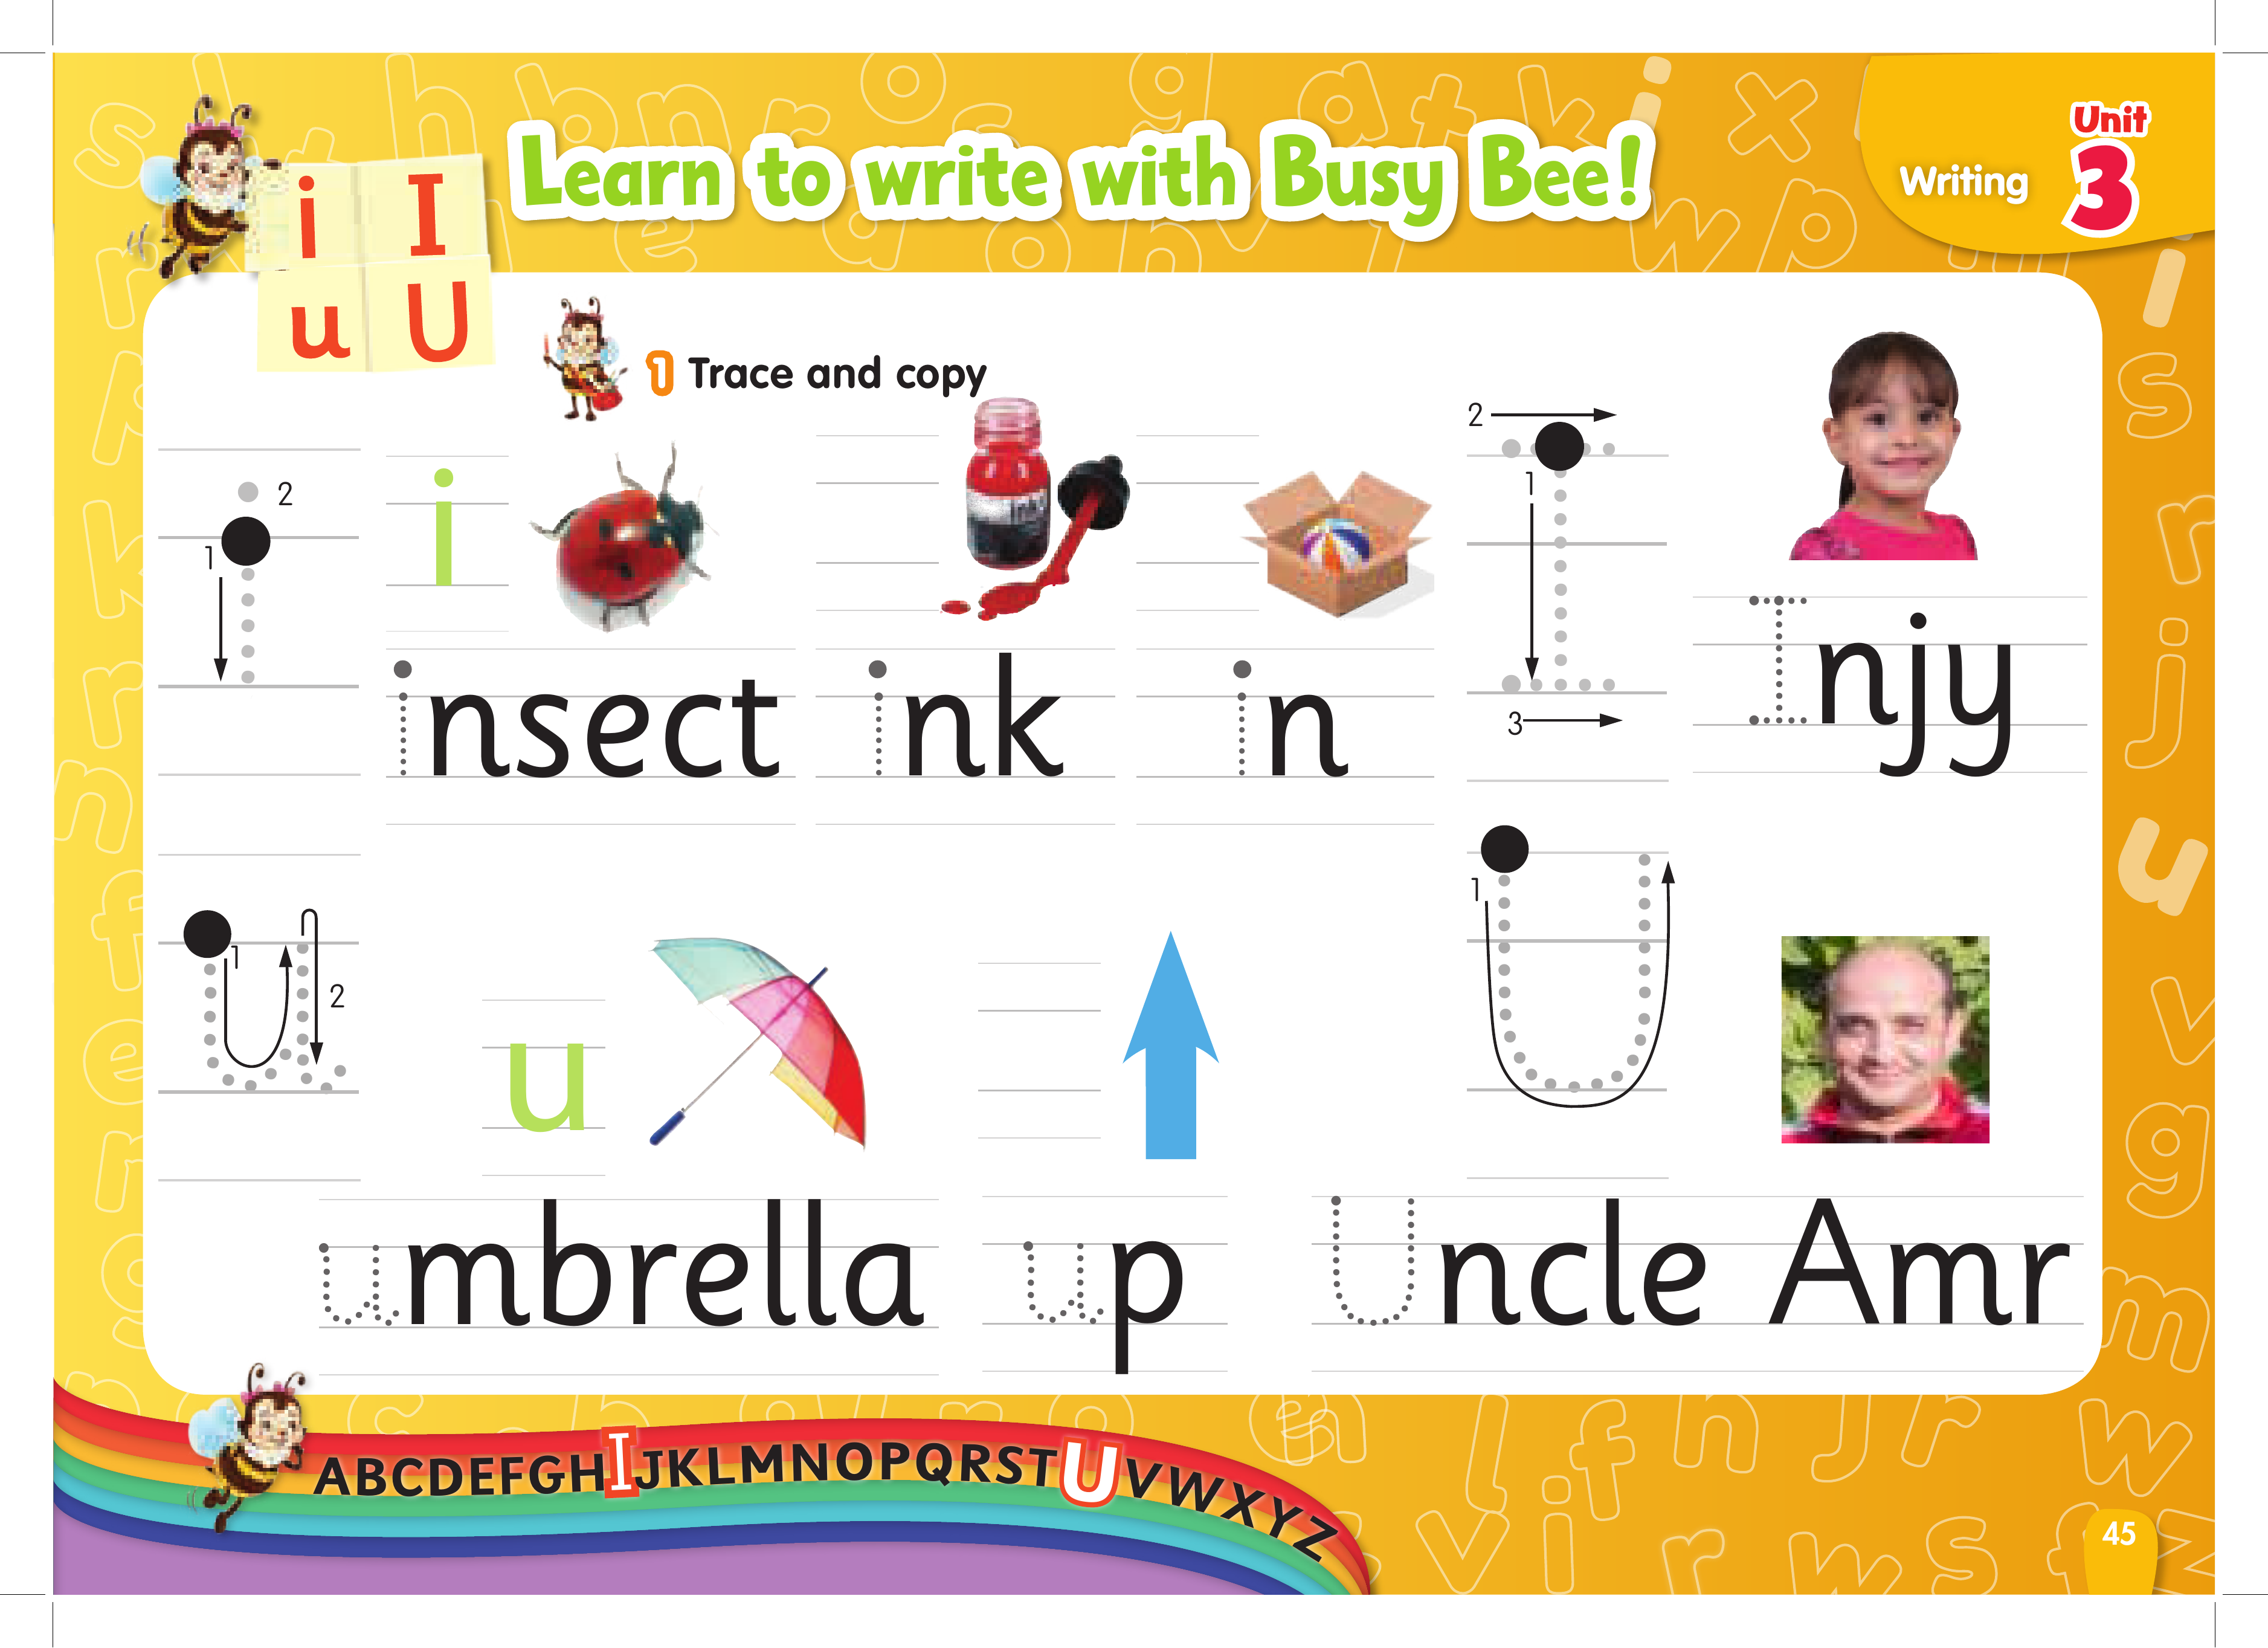 Learn to write with Busy Bee!
Unit
Writing 3
i I
u U
1 Trace and copy
2
1
i
Ink
2
1
3
insect ink in Injy
1
2
u
1
umbrella up Uncle Amr
ABCDEFGHIJKLMNOPQRSTUVWXYZ
45